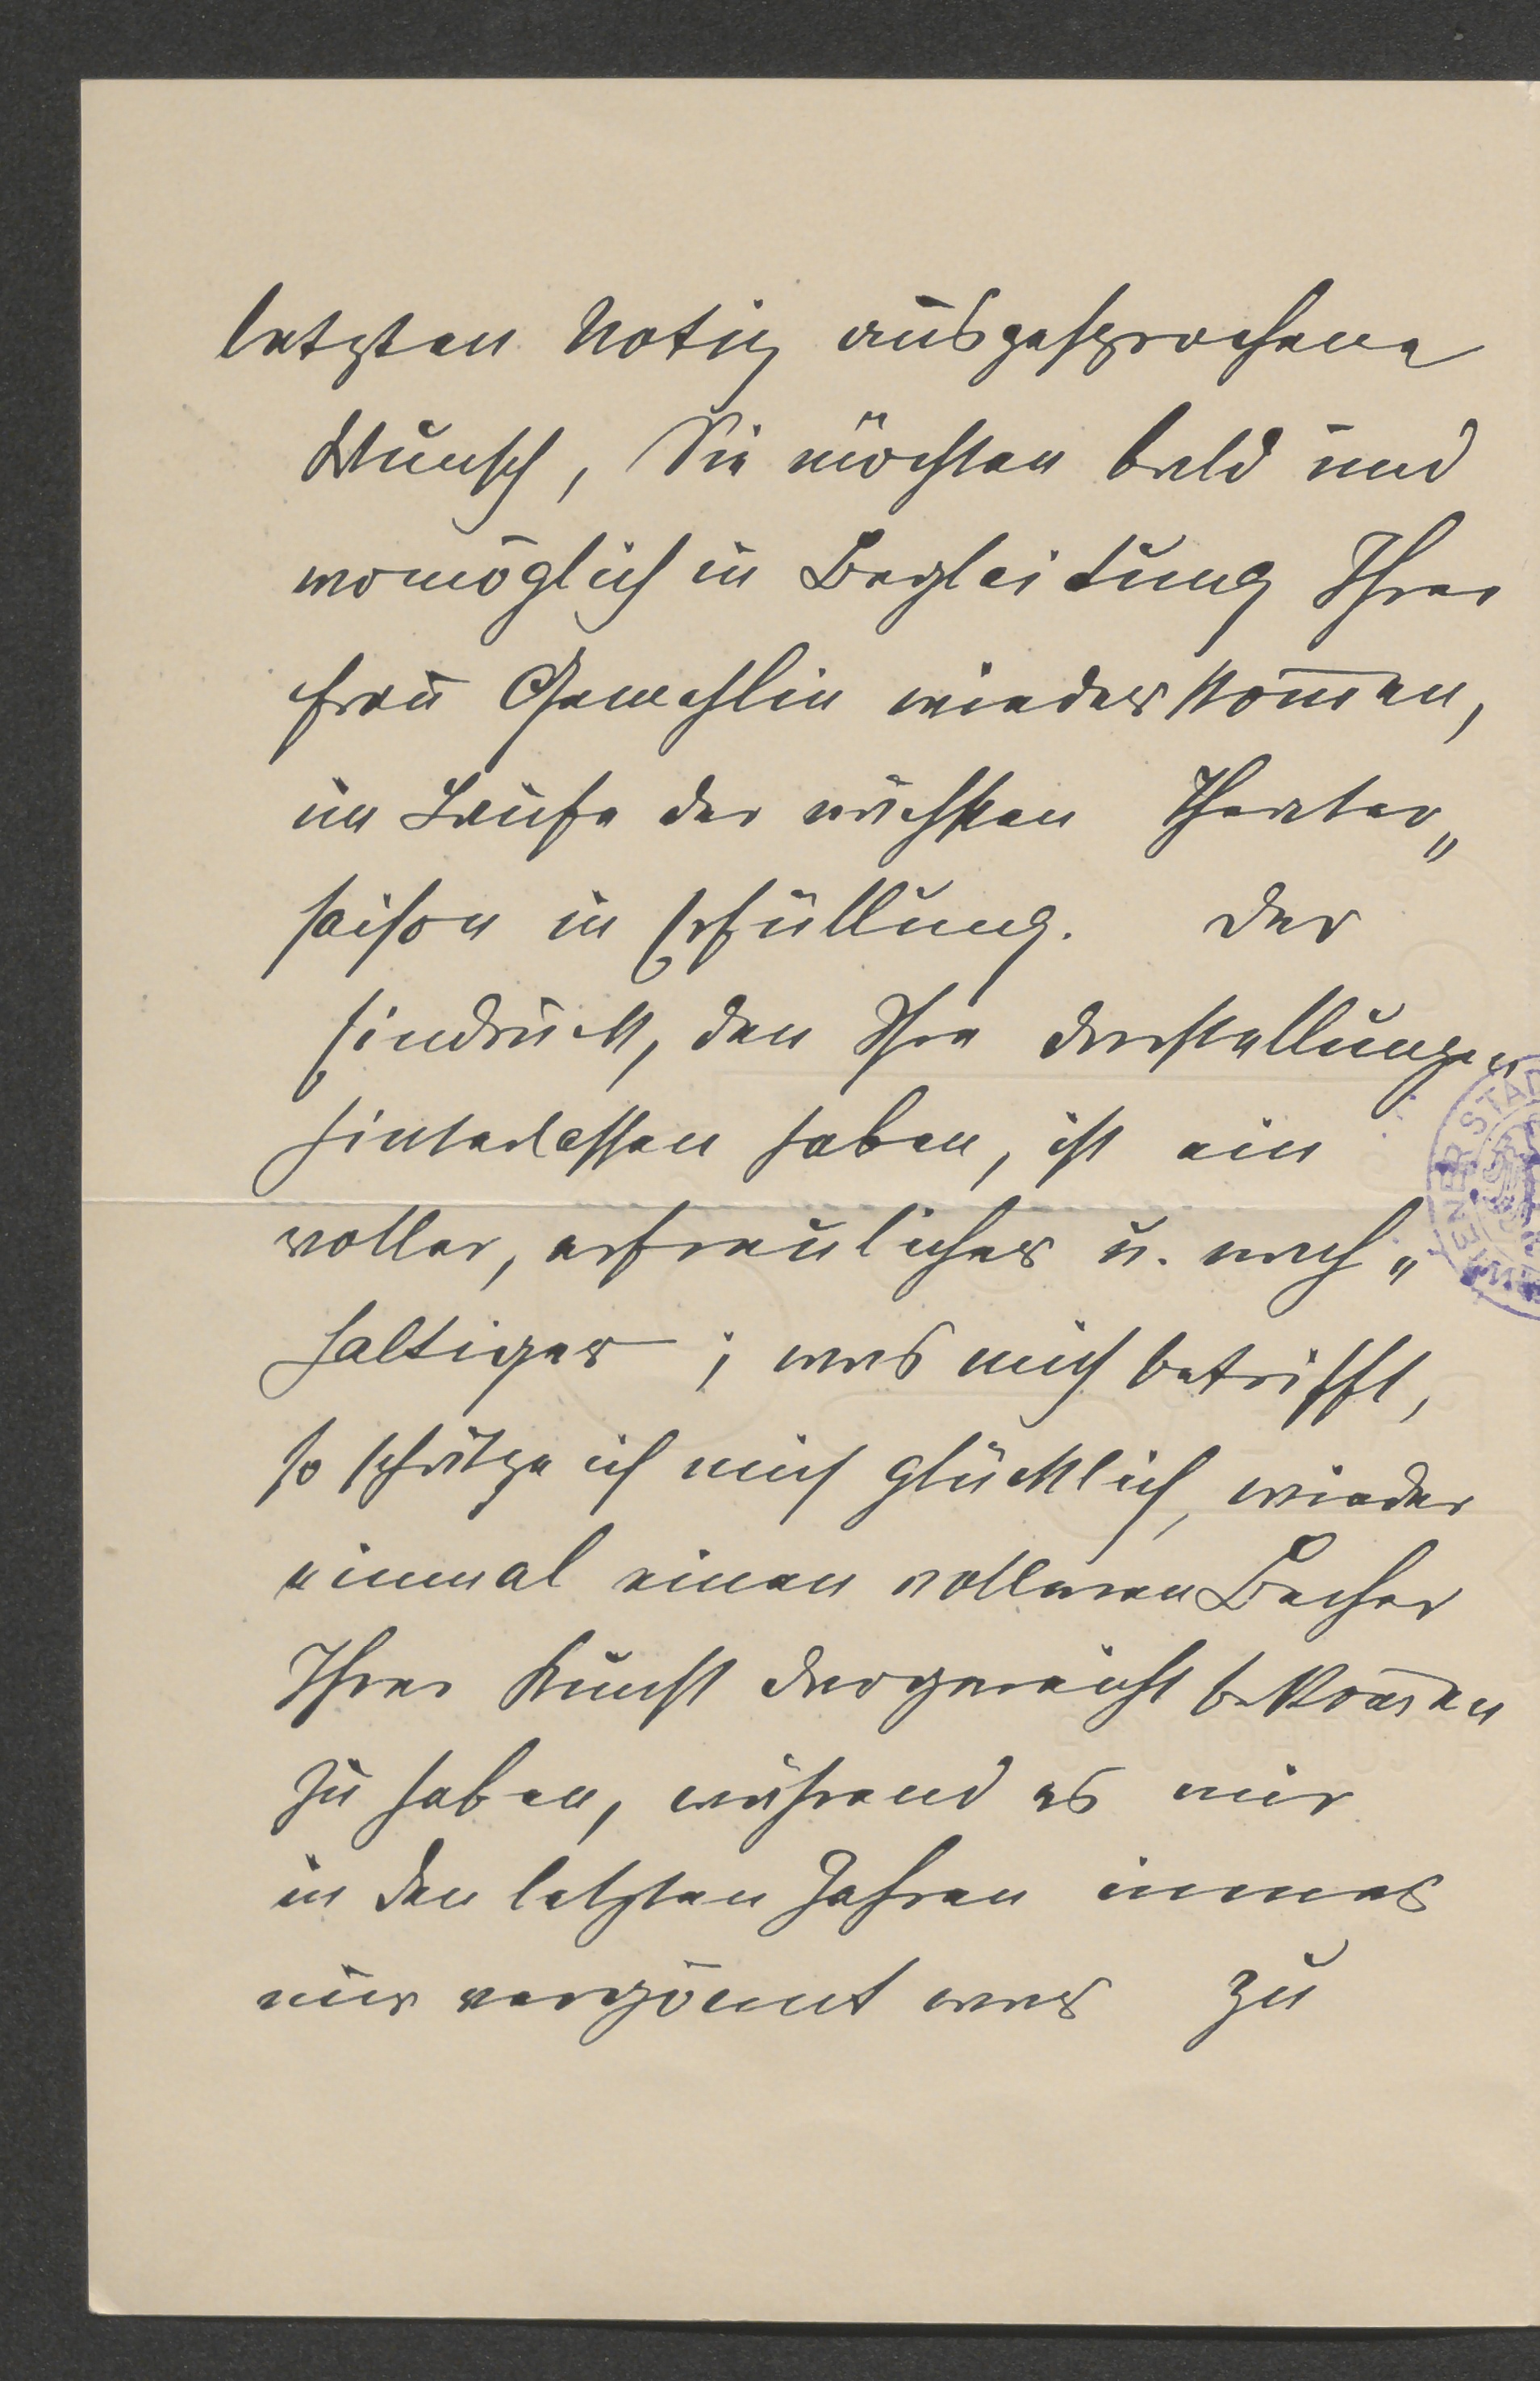 letzten Notiz ausgesprochene
Wunsch, Sie möchten bald und
womöglich in Begleitung Ihrer
Frau Gemahlin wieder kom̅en,
im Laufe der nächsten Theater„
saison in Erfüllung. Der
Eindruck, den Ihre Darstellungen
hinterlassen haben, ist ein
voller, erfreulicher u. nach„
haltiger; was mich betrifft,
so schätze ich mich glücklich, wieder
einmal einen volleren Becher
Ihrer Kunst dargereicht bekom̅en
zu haben, während es mir
in den letzten Jahren immer
nur vergönnt war zu